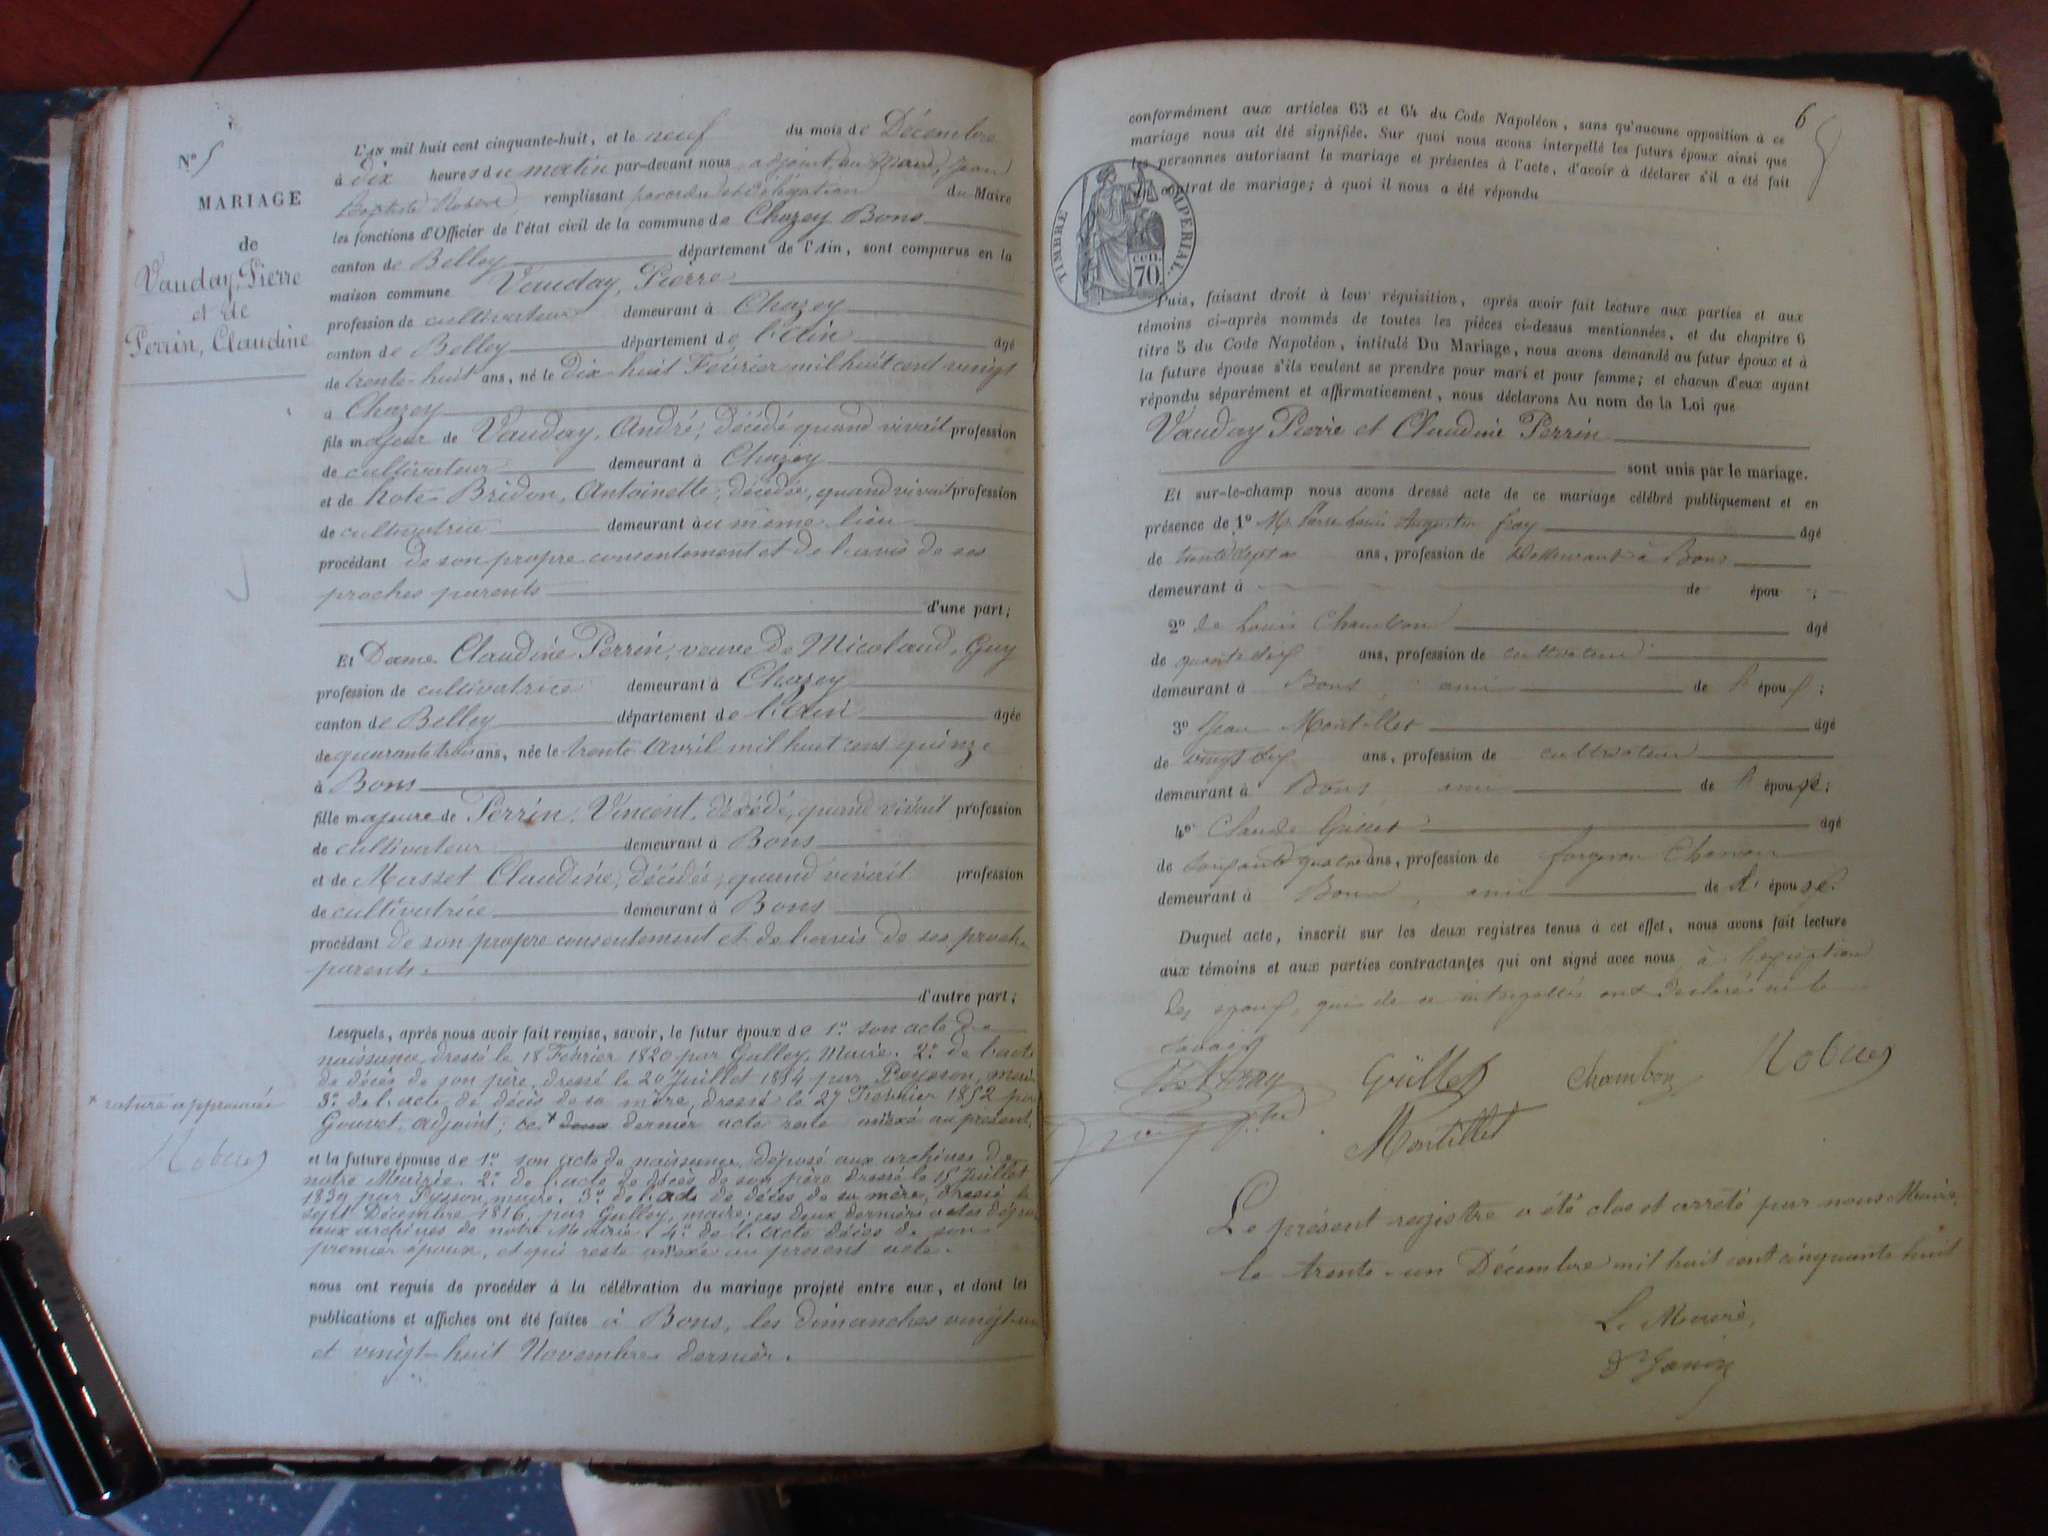 N° 5
MARIAGE
de
Vauday, Pierre
et de
Perrin, Claudine
L'AN mil huit cent cinquante-huit, et le neuf du mois de Décembre
à dix heures du matin par-devant nous adjoint au Maire, Jean
Baptiste Robert remplissant par ordre et délégation du Maire
les fonctions d'Officier de l'état civil de la commune de Chazey Bons
canton de Belley département de l'Ain, sont comparus en la
maison commune Vauday, Pierre
profession de cultivateur demeurant à Chazey
canton de Belley département de l'Ain âgé
de trente-huit ans, né le dix-huit Février mil huit cent vingt
à Chazey
fils majeur de Vauday, André, décédé quand vivait profession
de cultivateur demeurant à Chazey
et de Bridon, Antoinette, décédée, quand vivait profession
de cultivatrice demeurant au même lieu
procédant de son propre consentement et de l'avis de ses
proches parents
d'une part;
Et Dame Claudine Perrin, veuve de Micolaud, Guy
profession de cultivatrice demeurant à Chazey
canton de Belley département de l'Ain âgée
de quarante trois ans, née le trente Avril mil huit cent quinze
à Bons
fille majeure de Perrin, Vincent, décédé, quand vivait profession
de cultivateur demeurant à Bons
et de Masset Claudine, décédée, quand vivait profession
de cultivatrice demeurant à Bons
procédant de son propre consentement et de l'avis de ses proches
parents.
d'autre part;
Lesquels, après nous avoir fait remise, savoir, le futur époux de 1° son acte de
naissance, dressé le 18 Février 1820 par Gulley, Maire. 2° de l'acte
de décès de son père, dressé le 20 Juillet 1854 par Peysson, maire
3° de l'acte de décès de sa mère, dressé le 27 Février 1852 par
Gouvet, adjoint; ce * deux dernier acte reste annexé au présent.
* rature approuvée
Robert
et la future épouse de 1° son acte de naissance, déposé aux archives de
notre Mairie. 2° de l'acte de décès de son père dressé le 15 Juillet
1839 par Peysson, maire. 3° de l'acte de décès de sa mère, dressé le
sept Décembre 1816, par Gulley, maire; ces deux derniers actes déposés
aux archives de notre Mairie. 4° de l'acte décès de son
premier époux, et qui reste annexé au présent acte.
nous ont requis de procéder à la célébration du mariage projeté entre eux, et dont les
publications et affiches ont été faites à Bons, les dimanches vingt-un
et vingt-huit Novembre dernier.
6
conformément aux articles 63 et 64 du Code Napoléon, sans qu'aucune opposition à ce
mariage nous ait été signifiée. Sur quoi nous avons interpellé les futurs époux ainsi que
les personnes autorisant le mariage et présentes à l'acte, d'avoir à déclarer s'il a été fait
un contrat de mariage; à quoi il nous a été répondu
TIMBRE IMPÉRIAL.
CENT. 70
Puis, faisant droit à leur réquisition, après avoir fait lecture aux parties et aux
témoins ci-après nommés de toutes les pièces ci-dessus mentionnées, et du chapitre 6
titre 5 du Code Napoléon, intitulé Du Mariage, nous avons demandé au futur époux et à
la future épouse s'ils veulent se prendre pour mari et pour femme; et chacun d'eux ayant
répondu séparément et affirmativement, nous déclarons Au nom de la Loi que
Vauday Pierre et Claudine Perrin
sont unis par le mariage.
Et sur-le-champ nous avons dressé acte de ce mariage célébré publiquement et en
présence de 1° Mr Louis Augustin Fray âgé
de ans, profession de demeurant à Bons
demeurant à de épou ;
2° de Louis Chambon âgé
de ans, profession de cultivateur
demeurant à Bons, ami de l'époux;
3° Jean Montillet âgé
de ans, profession de cultivateur
demeurant à Bons, ami de l'épouse;
4° Claude âgé
de soixante quatre ans, profession de forgeron
demeurant à Bons, ami de l'épouse.
Duquel acte, inscrit sur les deux registres tenus à cet effet, nous avons fait lecture
aux témoins et aux parties contractantes qui ont signé avec nous, à l'exception
des époux, qui de ce ont déclaré ne le
savoir
Fray Güillet Chambon Robert
Montillet
Le présent registre a été clos et arrêté par nous Maire,
le trente-un Décembre mil huit cent cinquante huit
Le Maire,